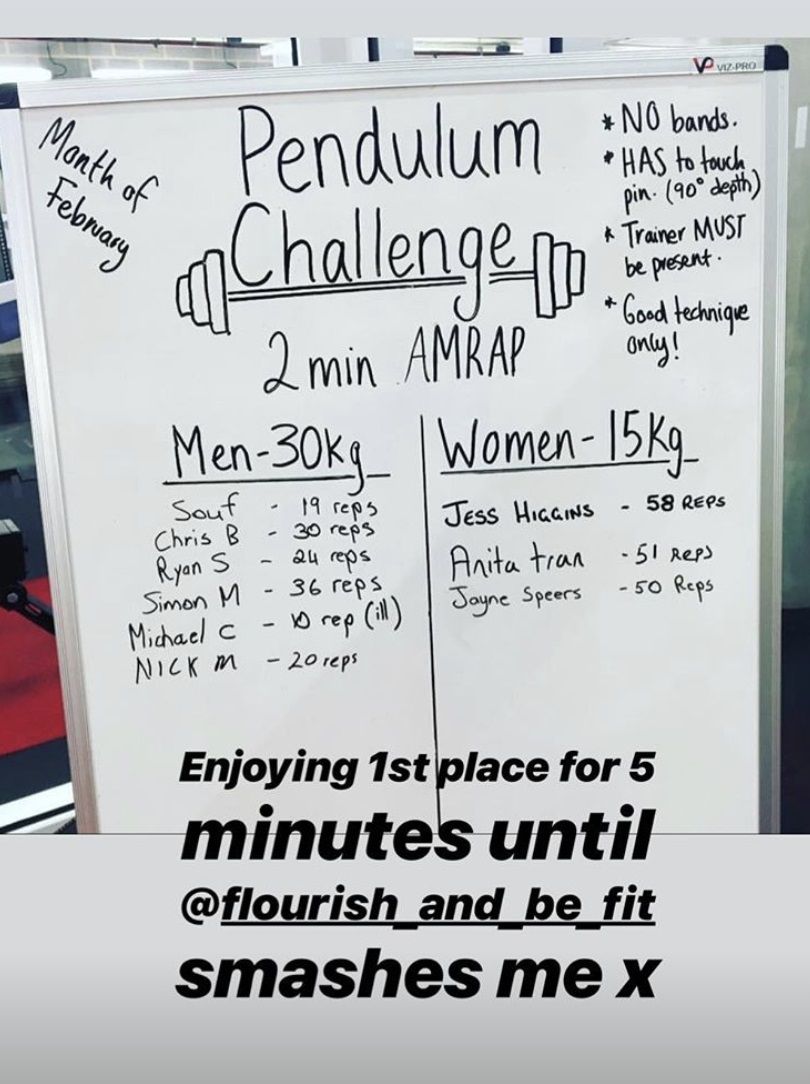 VIZ-PRO
Month of
February
Pendulum
Challenge
2 min AMRAP
* NO bands.
* HAS to touch
pin. (90° depth)
* Trainer MUST
be present.
* Good technique
only!
Men-30kg
Souf - 19 reps
Chris B - 30 reps
Ryan S - 24 reps
Simon M - 36 reps
Michael C - 10 rep (ill)
NICK M - 20 reps
Women-15Kg
JESS HIGGINS - 58 REPS
Anita tran - 51 Reps
Jayne Speers - 50 Reps
Enjoying 1st place for 5
minutes until
@flourish_and_be_fit
smashes me x